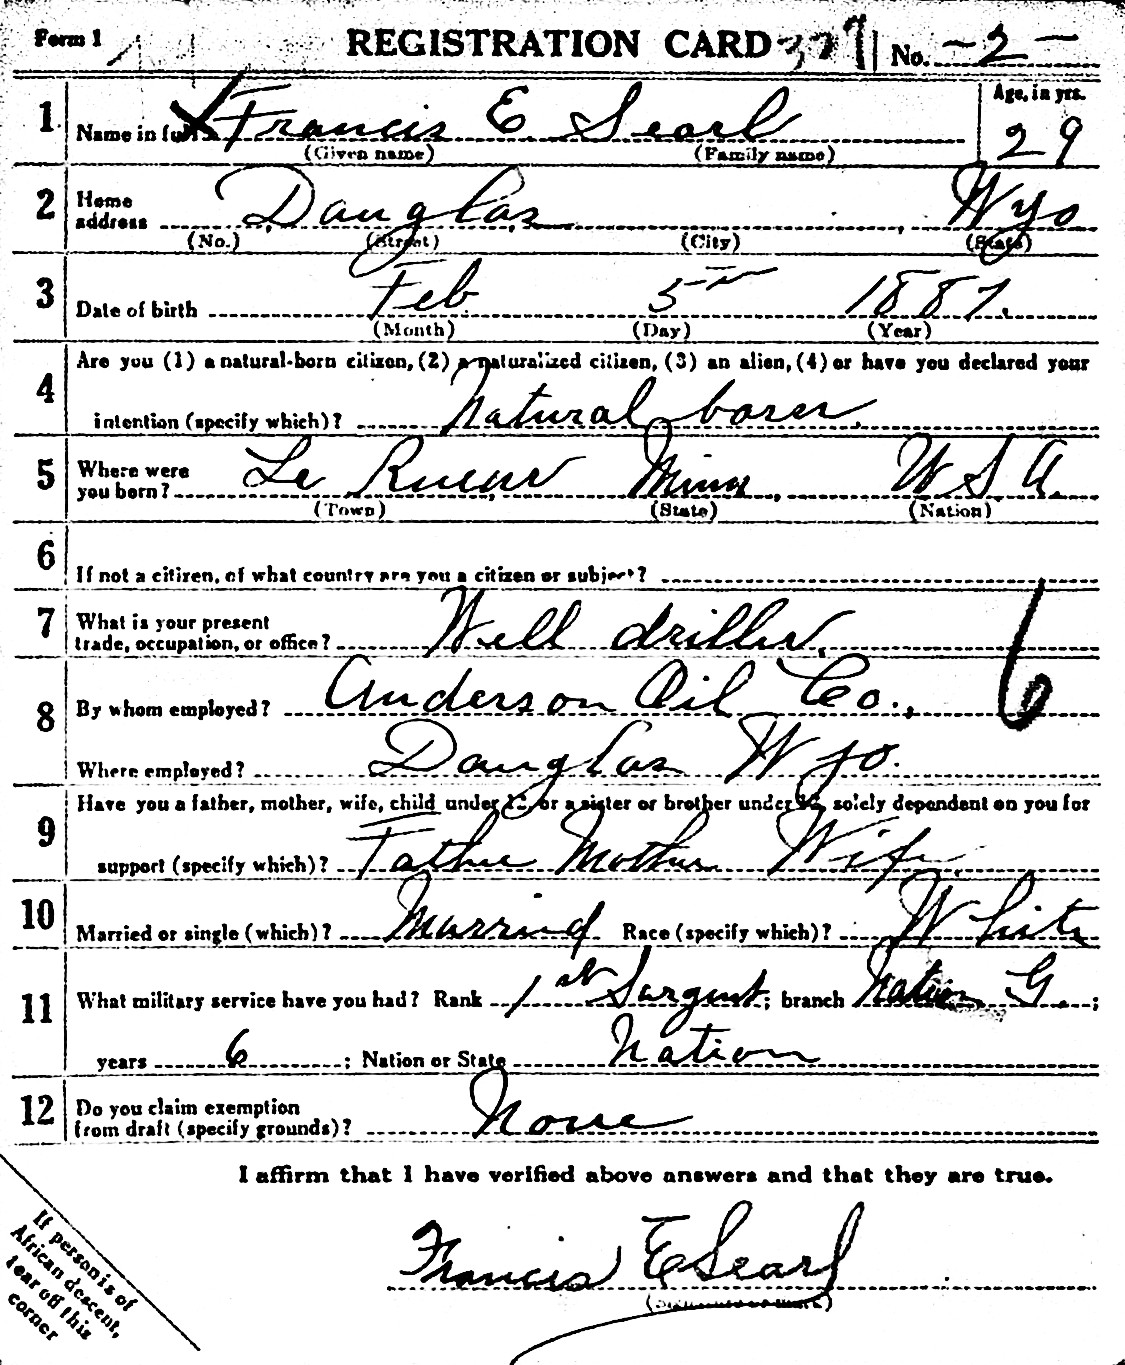 Form 1 REGISTRATION CARD 327 No. -2-
1 Name in full Francis E Searl Age, in yrs. 29
(Given name) (Family name)
2 Home address Douglas Wyo
(No.) (Street) (City) (State)
3 Date of birth Feb 5th 1887.
(Month) (Day) (Year)
4 Are you (1) a natural-born citizen, (2) a naturalized citizen, (3) an alien, (4) or have you declared your
intention (specify which)? Natural born
5 Where were you born? Le Sueur Minn. U.S.A.
(Town) (State) (Nation)
6 If not a citizen, of what country are you a citizen or subject?
7 What is your present
trade, occupation, or office? Well driller. 6
8 By whom employed? Anderson Oil Co.,
Where employed? Douglas Wyo.
9 Have you a father, mother, wife, child under 12, or a sister or brother under 12, solely dependent on you for
support (specify which)? Father Mother Wife
10 Married or single (which)? Married Race (specify which)? White
11 What military service have you had? Rank 1st Sargent; branch Nation G.;
years 6; Nation or State Nation
12 Do you claim exemption
from draft (specify grounds)? None
I affirm that I have verified above answers and that they are true.
Francis E Searl
(Signature or mark)
If person is of
African descent,
tear off this
corner